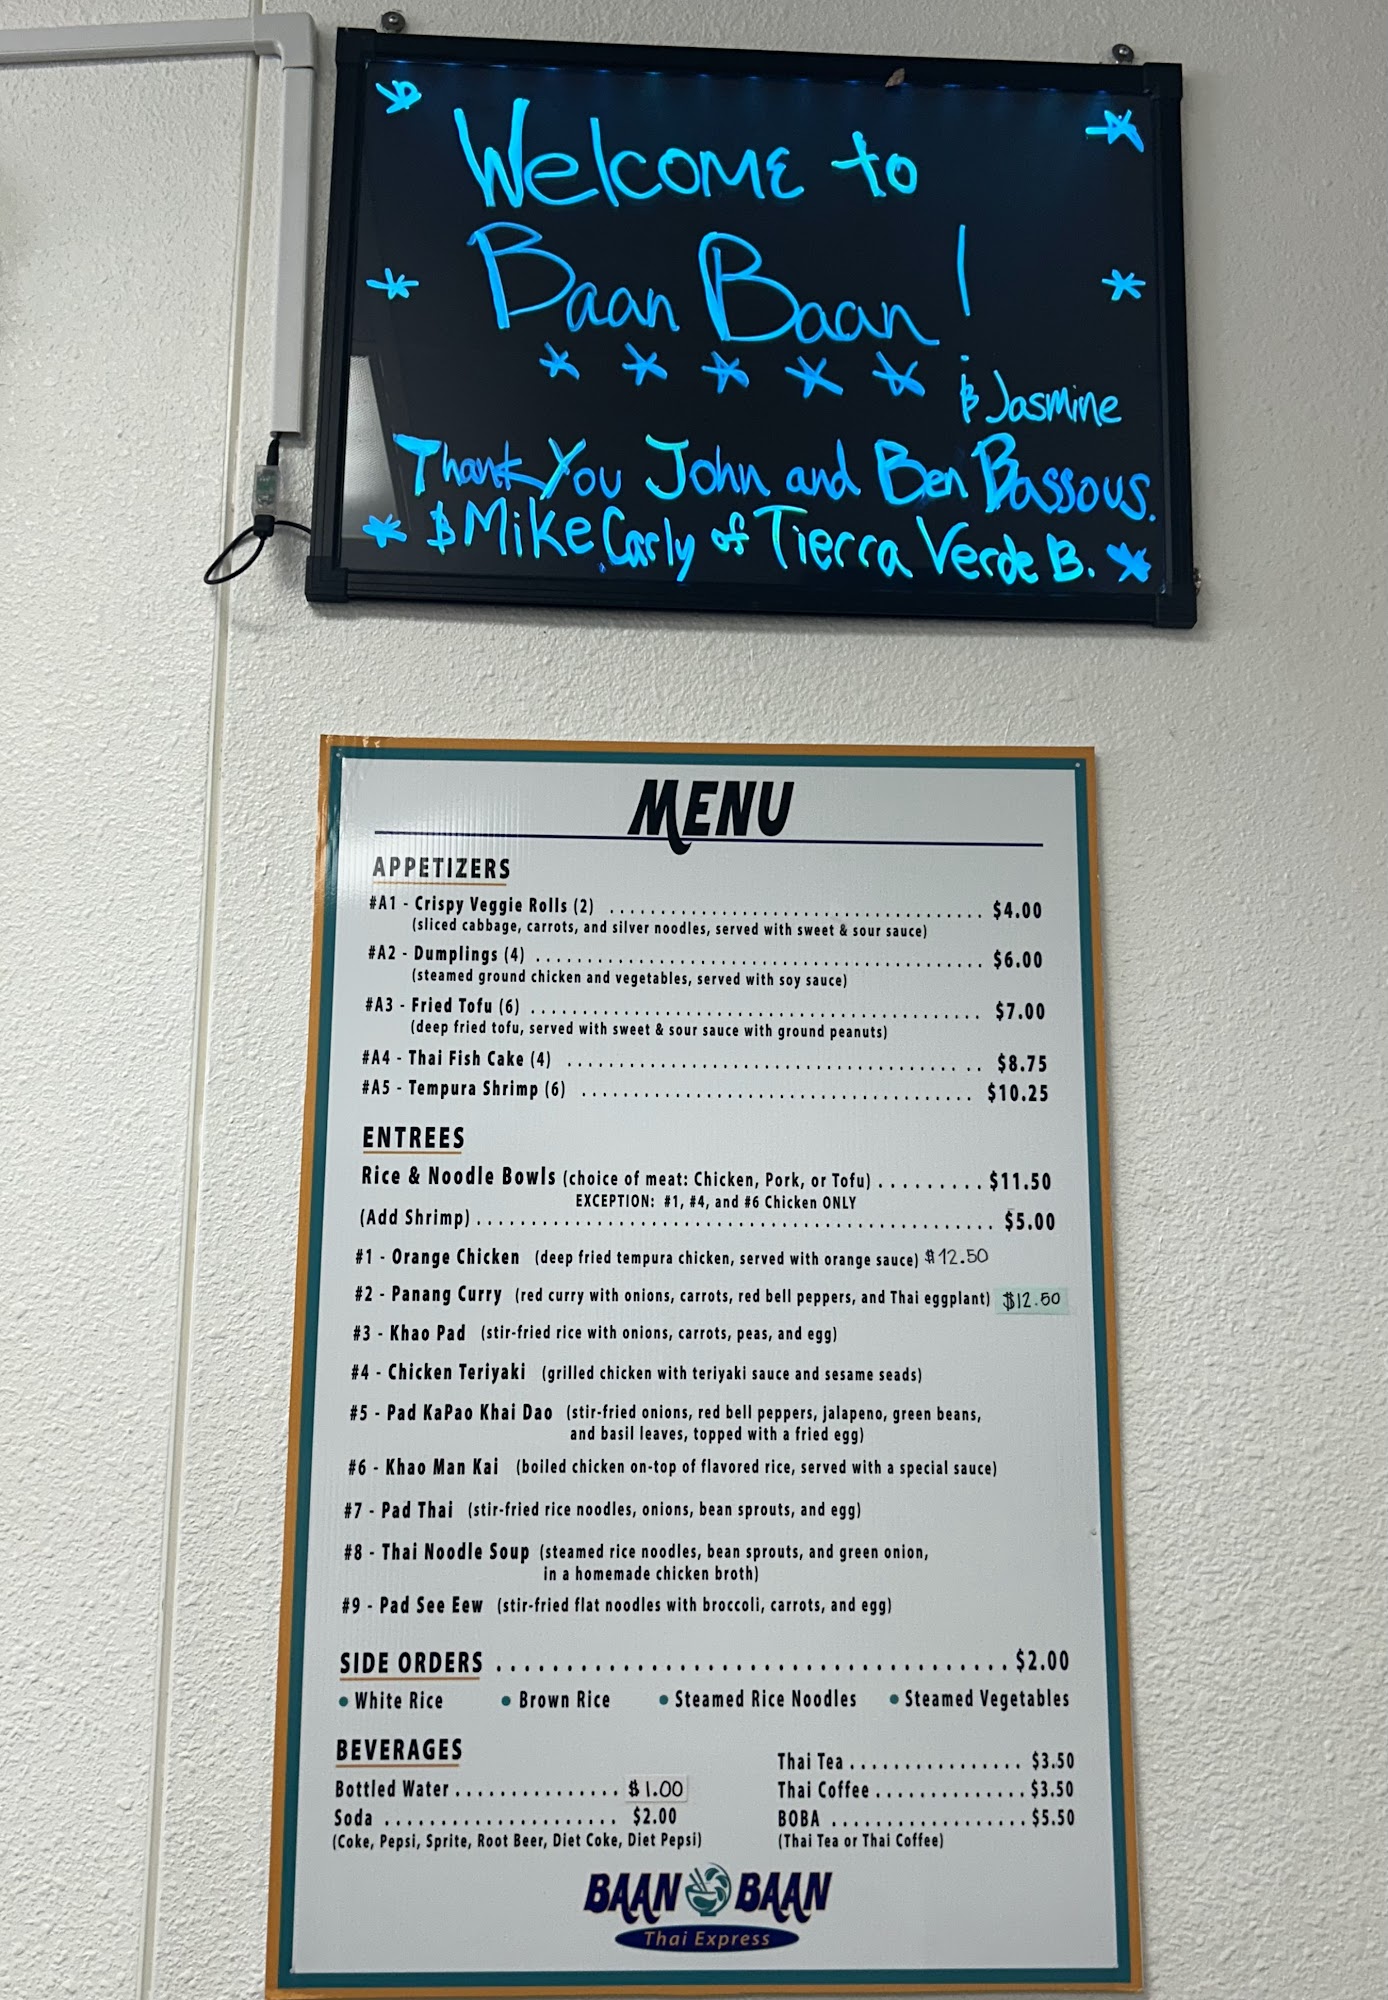 Welcome to
Baan Baan!
& Jasmine
Thank You John and Ben Bassous.
& Mike Carly of Tierra Verde B.
MENU
APPETIZERS
#A1 - Crispy Veggie Rolls (2) ..... $4.00
(sliced cabbage, carrots, and silver noodles, served with sweet & sour sauce)
#A2 - Dumplings (4) ..... $6.00
(steamed ground chicken and vegetables, served with soy sauce)
#A3 - Fried Tofu (6) ..... $7.00
(deep fried tofu, served with sweet & sour sauce with ground peanuts)
#A4 - Thai Fish Cake (4) ..... $8.75
#A5 - Tempura Shrimp (6) ..... $10.25
ENTREES
Rice & Noodle Bowls (choice of meat: Chicken, Pork, or Tofu) ..... $11.50
EXCEPTION: #1, #4, and #6 Chicken ONLY
(Add Shrimp) ..... $5.00
#1 - Orange Chicken (deep fried tempura chicken, served with orange sauce) $12.50
#2 - Panang Curry (red curry with onions, carrots, red bell peppers, and Thai eggplant) $12.50
#3 - Khao Pad (stir-fried rice with onions, carrots, peas, and egg)
#4 - Chicken Teriyaki (grilled chicken with teriyaki sauce and sesame seads)
#5 - Pad KaPao Khai Dao (stir-fried onions, red bell peppers, jalapeno, green beans,
and basil leaves, topped with a fried egg)
#6 - Khao Man Kai (boiled chicken on-top of flavored rice, served with a special sauce)
#7 - Pad Thai (stir-fried rice noodles, onions, bean sprouts, and egg)
#8 - Thai Noodle Soup (steamed rice noodles, bean sprouts, and green onion,
in a homemade chicken broth)
#9 - Pad See Eew (stir-fried flat noodles with broccoli, carrots, and egg)
SIDE ORDERS ..... $2.00
• White Rice • Brown Rice • Steamed Rice Noodles • Steamed Vegetables
BEVERAGES
Bottled Water ..... $1.00
Soda ..... $2.00
(Coke, Pepsi, Sprite, Root Beer, Diet Coke, Diet Pepsi)
Thai Tea ..... $3.50
Thai Coffee ..... $3.50
BOBA ..... $5.50
(Thai Tea or Thai Coffee)
BAAN BAAN
Thai Express